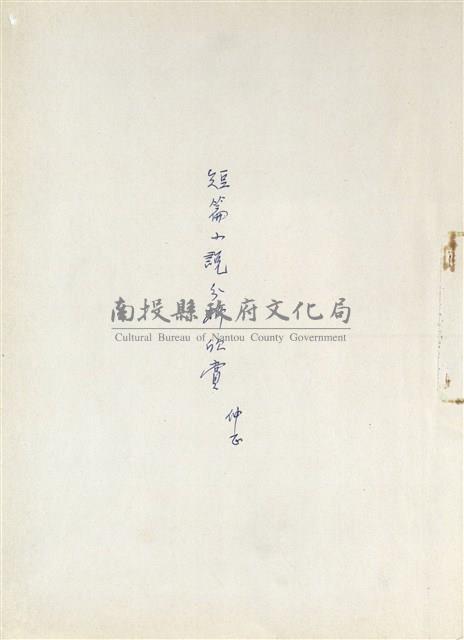 短篇小說分析欣賞
仲正
南投縣政府文化局
Cultural Bureau of Nantou County Government